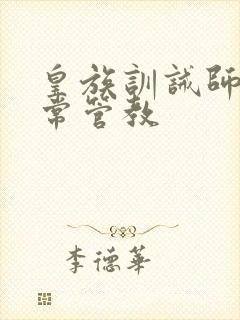 皇族訓誡師
常管教
李德華